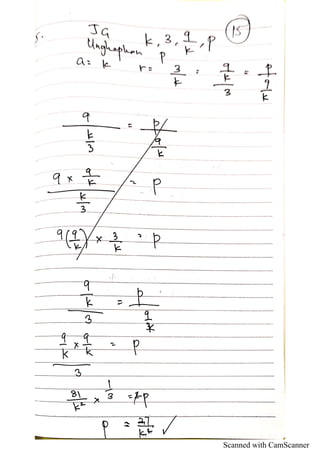 5.
JG k, 3, 9/k, p (15)
Ungkapkan p
a = k r = 3/k = (9/k)/3 = p/(9/k)
9/(k/3) = p/(9/k)
(9 × 9/k)/(k/3) = p
9(9/k) × 3/k = p
(9/k)/3 = p/(9/k)
(9/k × 9/k)/3 = p
81/k² × 1/3 = p
p = 27/k² ✓
Scanned with CamScanner